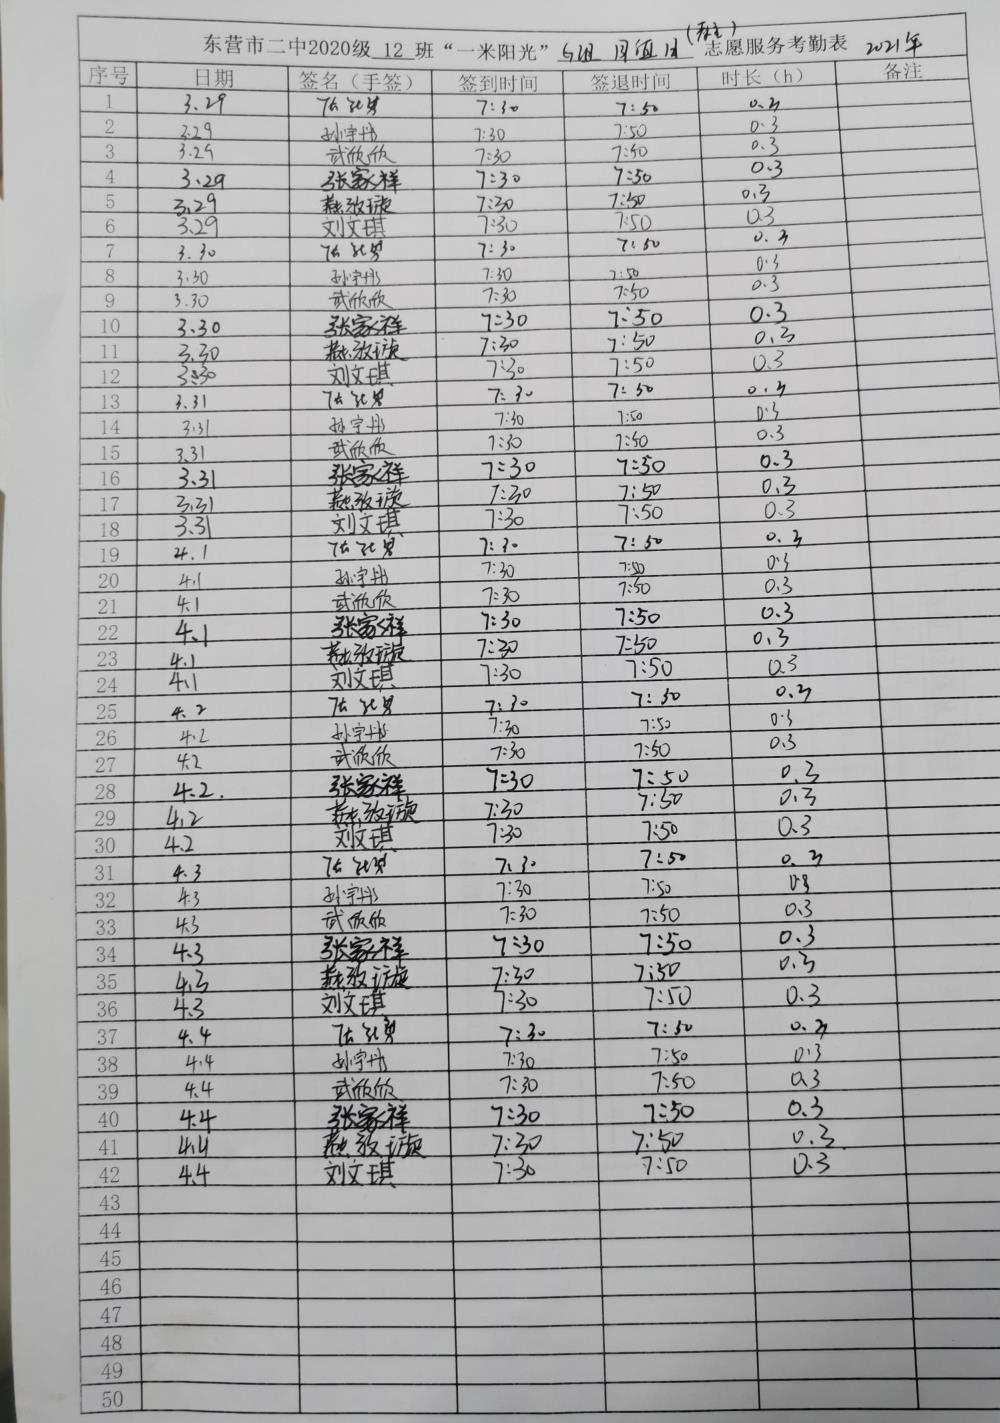 (存主)
东营市二中2020级 12 班“一米阳光” 5组 周值日 志愿服务考勤表 2021年
序号 日期 签名（手签） 签到时间 签退时间 时长（h） 备注
1 3.29 7:30 7:50 0.3
2 3.29 孙宇彤 7:30 7:50 0.3
3 3.29 武欣欣 7:30 7:50 0.3
4 3.29 张家祥 7:30 7:50 0.3
5 3.29 7:30 7:50 0.3
6 3.29 刘文琪 7:30 7:50 0.3
7 3.30 7:30 7:50 0.3
8 3.30 孙宇彤 7:30 7:50 0.3
9 3.30 武欣欣 7:30 7:50 0.3
10 3.30 张家祥 7:30 7:50 0.3
11 3.30 7:30 7:50 0.3
12 3.30 刘文琪 7:30 7:50 0.3
13 3.31 7:30 7:50 0.3
14 3.31 孙宇彤 7:30 7:50 0.3
15 3.31 武欣欣 7:30 7:50 0.3
16 3.31 张家祥 7:30 7:50 0.3
17 3.31 7:30 7:50 0.3
18 3.31 刘文琪 7:30 7:50 0.3
19 4.1 7:30 7:50 0.3
20 4.1 孙宇彤 7:30 7:50 0.3
21 4.1 武欣欣 7:30 7:50 0.3
22 4.1 张家祥 7:30 7:50 0.3
23 4.1 7:30 7:50 0.3
24 4.1 刘文琪 7:30 7:50 0.3
25 4.2 7:30 7:50 0.3
26 4.2 孙宇彤 7:30 7:50 0.3
27 4.2 武欣欣 7:30 7:50 0.3
28 4.2. 张家祥 7:30 7:50 0.3
29 4.2 7:30 7:50 0.3
30 4.2 刘文琪 7:30 7:50 0.3
31 4.3 7:30 7:50 0.3
32 4.3 孙宇彤 7:30 7:50 0.3
33 4.3 武欣欣 7:30 7:50 0.3
34 4.3 张家祥 7:30 7:50 0.3
35 4.3 7:30 7:50 0.3
36 4.3 刘文琪 7:30 7:50 0.3
37 4.4 7:30 7:50 0.3
38 4.4 孙宇彤 7:30 7:50 0.3
39 4.4 武欣欣 7:30 7:50 0.3
40 4.4 张家祥 7:30 7:50 0.3
41 4.4 7:30 7:50 0.3
42 4.4 刘文琪 7:30 7:50 0.3
43
44
45
46
47
48
49
50